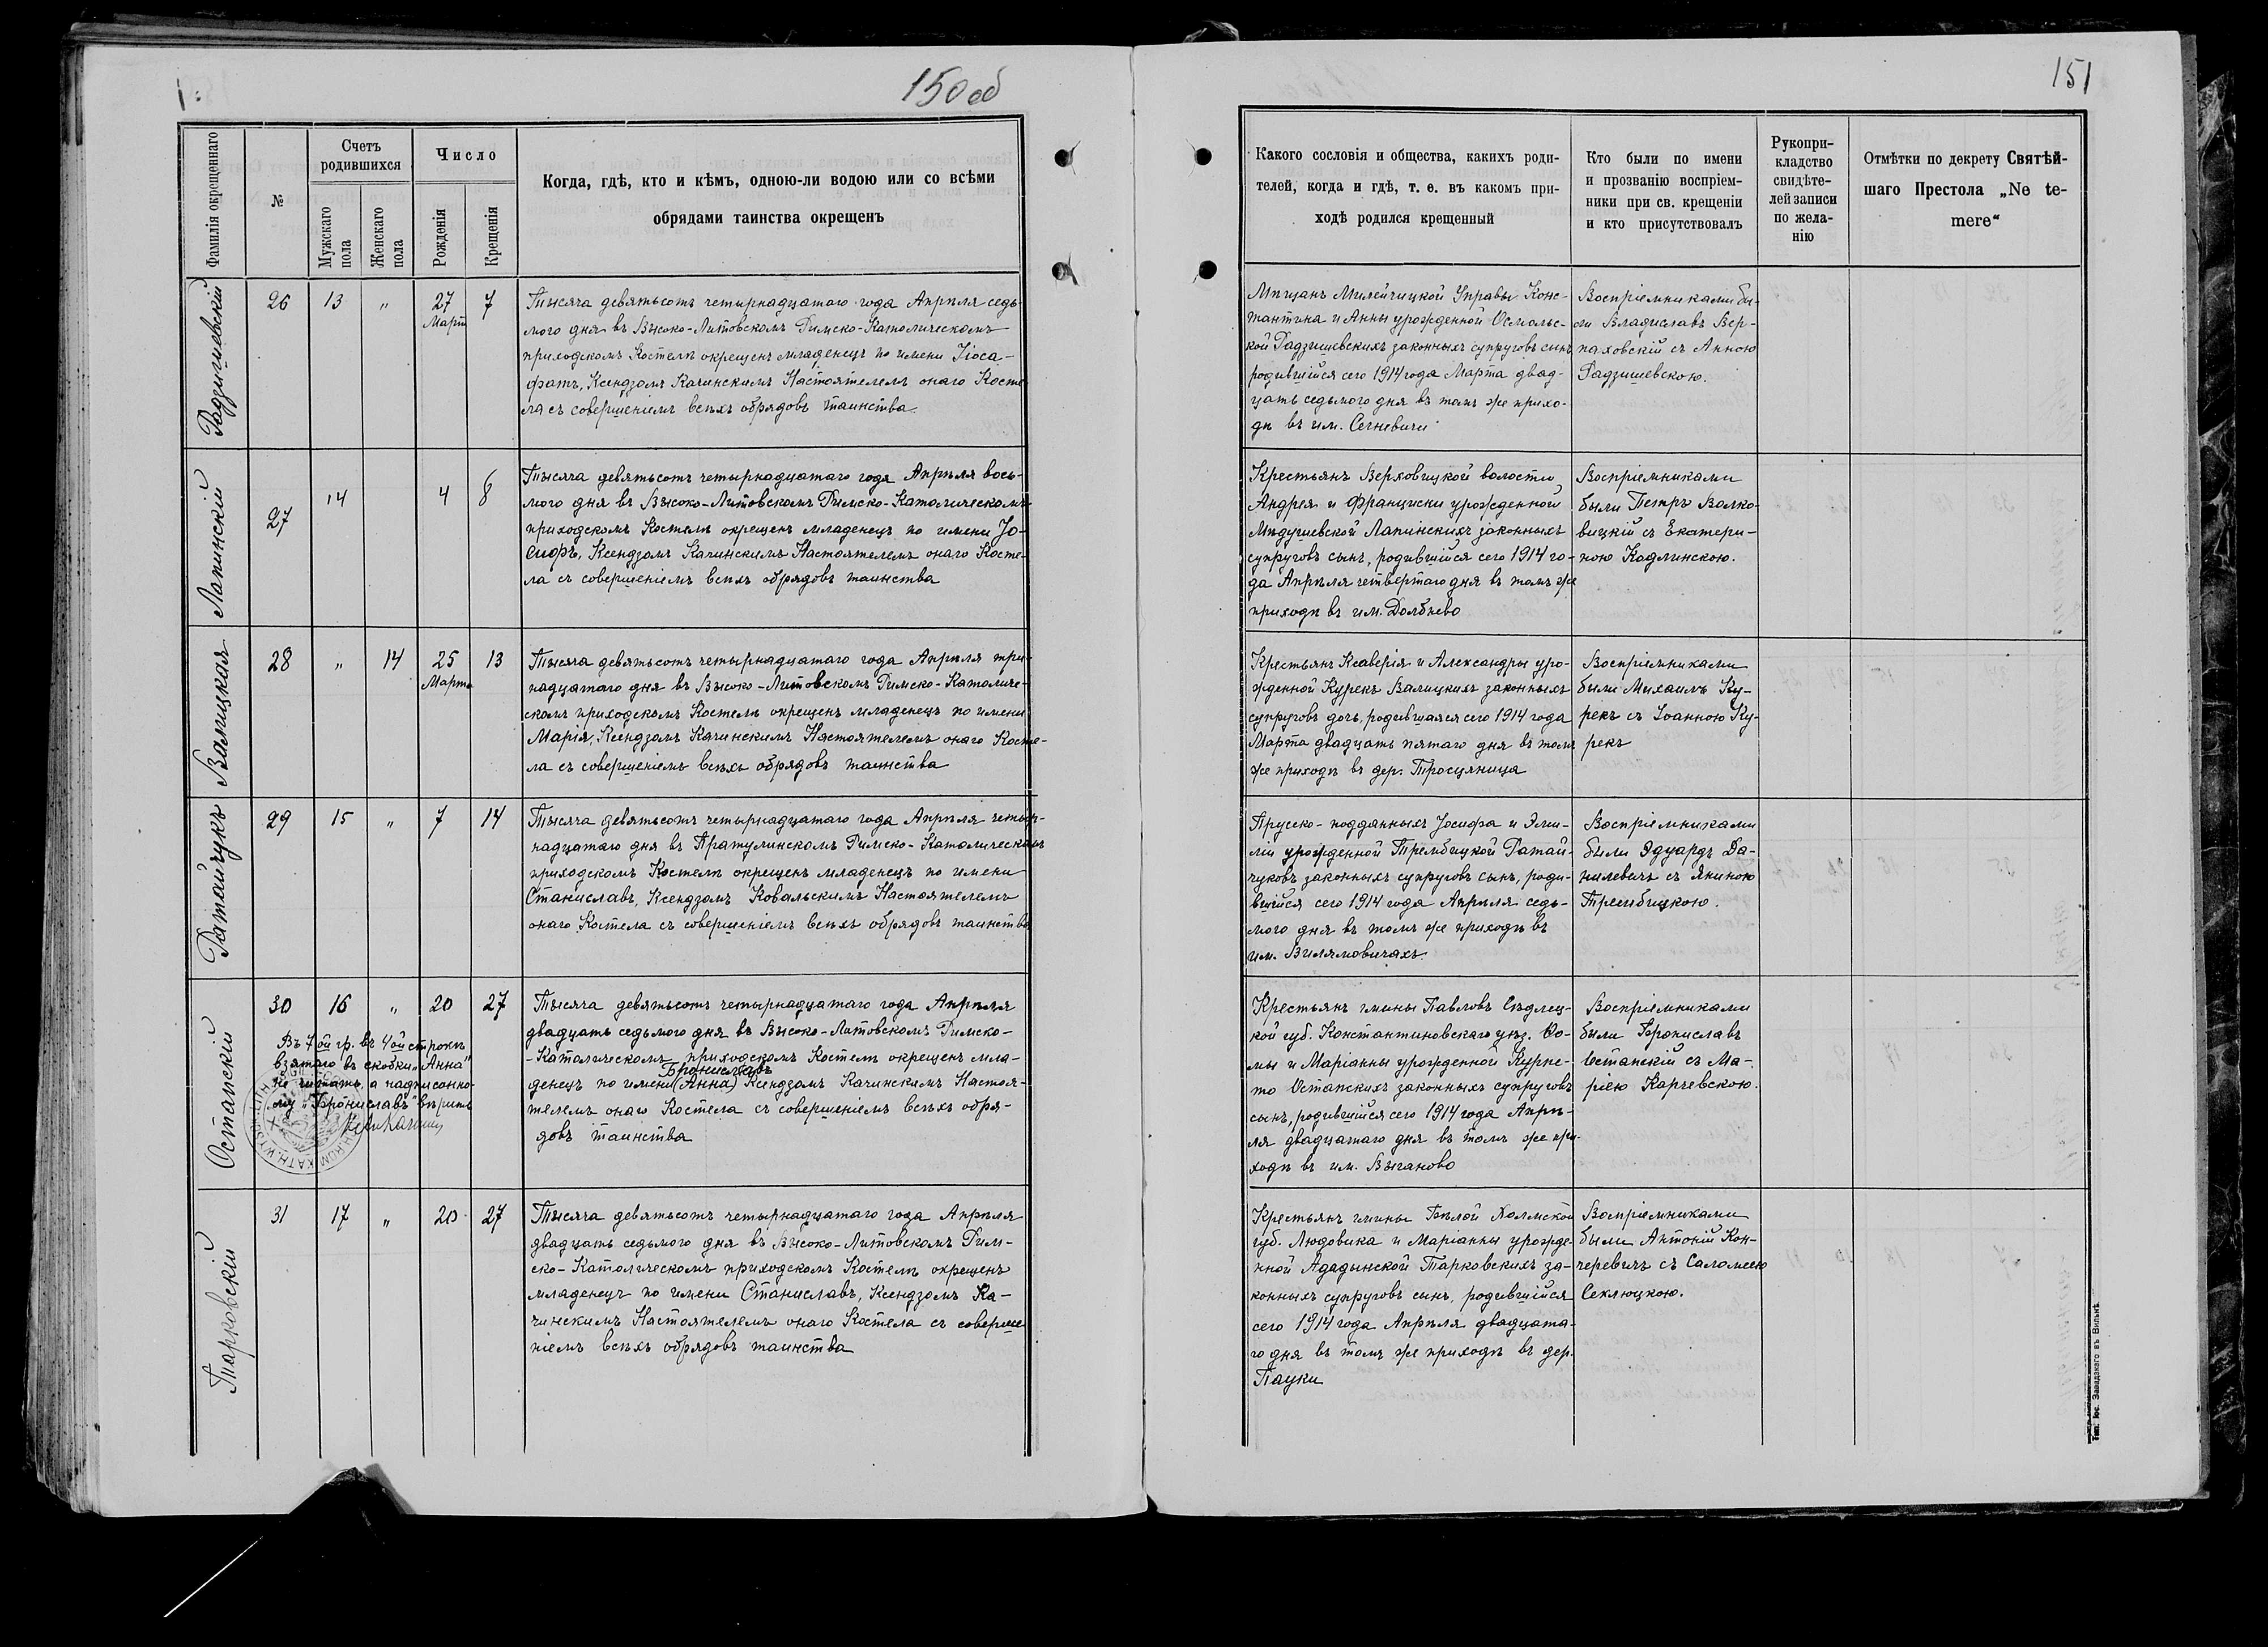 150 об
Фамилія окрещеннаго
№
Счетъ родившихся
Мужскаго пола
Женскаго пола
Число
Рожденія
Крещенія
Когда, гдѣ, кто и кѣмъ, одною-ли водою или со всѣми
обрядами таинства окрещенъ
Радзишевскій
26 13 „ 27 7
Март
Тысяча девятьсотъ четырнадцатаго года Апрѣля седь-
мого дня въ Высоко-Литовскомъ Римско-Католическомъ
приходскомъ Костелѣ окрещенъ младенецъ по имени Іоса-
фатъ, Ксендзомъ Качинскимъ Настоятелемъ онаго Косте
ла съ совершеніемъ всѣхъ обрядовъ таинства.
Лапинскій
27 14 4 8
Тысяча девятьсотъ четырнадцатаго года Апрѣля вось-
мого дня въ Высоко-Литовскомъ Римско-Католическомъ
приходскомъ Костелѣ окрещенъ младенецъ по имени Іо-
сифъ, Ксендзомъ Качинскимъ Настоятелемъ онаго Косте-
ла съ совершеніемъ всѣхъ обрядовъ таинства
Валицкая
28 „ 14 25 13
Марта
Тысяча девятьсотъ четырнадцатаго года Апрѣля три-
надцатаго дня въ Высоко-Литовскомъ Римско-Католиче-
скомъ приходскомъ Костелѣ окрещенъ младенецъ по имени
Марія, Ксендзомъ Качинскимъ Настоятелемъ онаго Косте-
ла съ совершеніемъ всѣхъ обрядовъ таинства
Ратайчукъ
29 15 „ 7 14
Тысяча девятьсотъ четырнадцатаго года Апрѣля четыр-
надцатаго дня въ Пратулинскомъ Римско-Католическомъ
приходскомъ Костелѣ окрещенъ младенецъ по имени
Станиславъ, Ксендзомъ Ковальскимъ Настоятелемъ
онаго Костела съ совершеніемъ всѣхъ обрядовъ таинства
Остапскій
30 16 „ 20 27
Въ 7ой гр. въ 4ой строкѣ
взятаго въ скобки „Анна"
не читать, а надписанно-
му „Брониславъ" вѣрить
Тысяча девятьсотъ четырнадцатаго года Апрѣля
двадцать седьмого дня въ Высоко-Литовскомъ Римско-
-Католическомъ приходскомъ Костелѣ окрещенъ мла-
Брониславъ
денецъ по имени (Анна) Ксендзомъ Качинскимъ Настоя-
телемъ онаго Костела съ совершеніемъ всѣхъ обря-
довъ таинства
Тарковскій
31 17 „ 20 27
Тысяча девятьсотъ четырнадцатаго года Апрѣля
двадцать седьмого дня въ Высоко-Литовскомъ Рим-
ско-Католическомъ приходскомъ Костелѣ окрещенъ
младенецъ по имени Станиславъ, Ксендзомъ Ка-
чинскимъ Настоятелемъ онаго Костела съ соверше
ніемъ всѣхъ обрядовъ таинства
151
Какого сословія и общества, какихъ роди-
телей, когда и гдѣ, т. е. въ какомъ при-
ходѣ родился крещенный
Кто были по имени
и прозванію воспріем-
ники при св. крещеніи
и кто присутствовалъ
Рукопри-
кладство
свидѣте-
лей записи
по жела-
нію
Отмѣтки по декрету Святѣй-
шаго Престола „Ne te-
mere“
Мѣщанъ Милейчицкой Управы Конс-
тантина и Анны урожденной Осмольс-
кой Радзишевскихъ законныхъ супруговъ сынъ
родившійся сего 1914 года Марта двад-
цать седьмого дня въ томъ же прихо-
дѣ въ им. Сегневичи
Воспріемниками бы-
ли Владиславъ Вер-
паховскій съ Анною
Радзишевскою.
Крестьянъ Верховицкой волости,
Андрея и Францишки урожденной
Мѣдушевской Лапинскихъ законныхъ
супруговъ сынъ, родившійся сего 1914 го-
да Апрѣля четвертаго дня въ томъ же
приходѣ въ им. Долбнево
Воспріемниками
были Петръ Валко-
вицкій съ Екатери-
ною Кодлинскою.
Крестьянъ Ксаверія и Александры уро-
жденной Курекъ Валицкихъ законныхъ
супруговъ дочь, родившаяся сего 1914 года
Марта двадцать пятаго дня въ томъ
же приходѣ въ дер. Тросцяница
Воспріемниками
были Михаилъ Ку-
рекъ съ Іоанною Ку-
рекъ
Прусско-подданныхъ Іосифа и Эми-
ліи урожденной Трембицкой Ратай-
чуковъ законныхъ супруговъ сынъ, роди-
вшійся сего 1914 года Апрѣля седь-
мого дня въ томъ же приходѣ въ
им. Вилямовичахъ.
Воспріемниками
были Эдуардъ Да-
нилевичъ съ Яниною
Трембицкою.
Крестьянъ гмины Павловъ Сѣдлец-
кой губ. Константиновскаго уѣз. Ѳо-
мы и Маріанны урожденной Курпе-
то Остапскихъ законныхъ супруговъ
сынъ, родившійся сего 1914 года Апрѣ-
ля двадцатаго дня въ томъ же при-
ходѣ въ им. Выганово
Воспріемниками
были Брониславъ
Остапскій съ Ма-
ріею Карчевскою.
Крестьянъ гмины Бѣлой Холмской
губ. Людовика и Маріанны урожде-
нной Ададынской Тарковскихъ за-
конныхъ супруговъ сынъ, родившійся
сего 1914 года Апрѣля двадцата-
го дня въ томъ же приходѣ въ дер.
Пауки
Воспріемниками
были Антоній Кон-
черевичъ съ Саломеею
Секлюцкою.
Тип. Іос. Завадзкаго въ Вильнѣ.